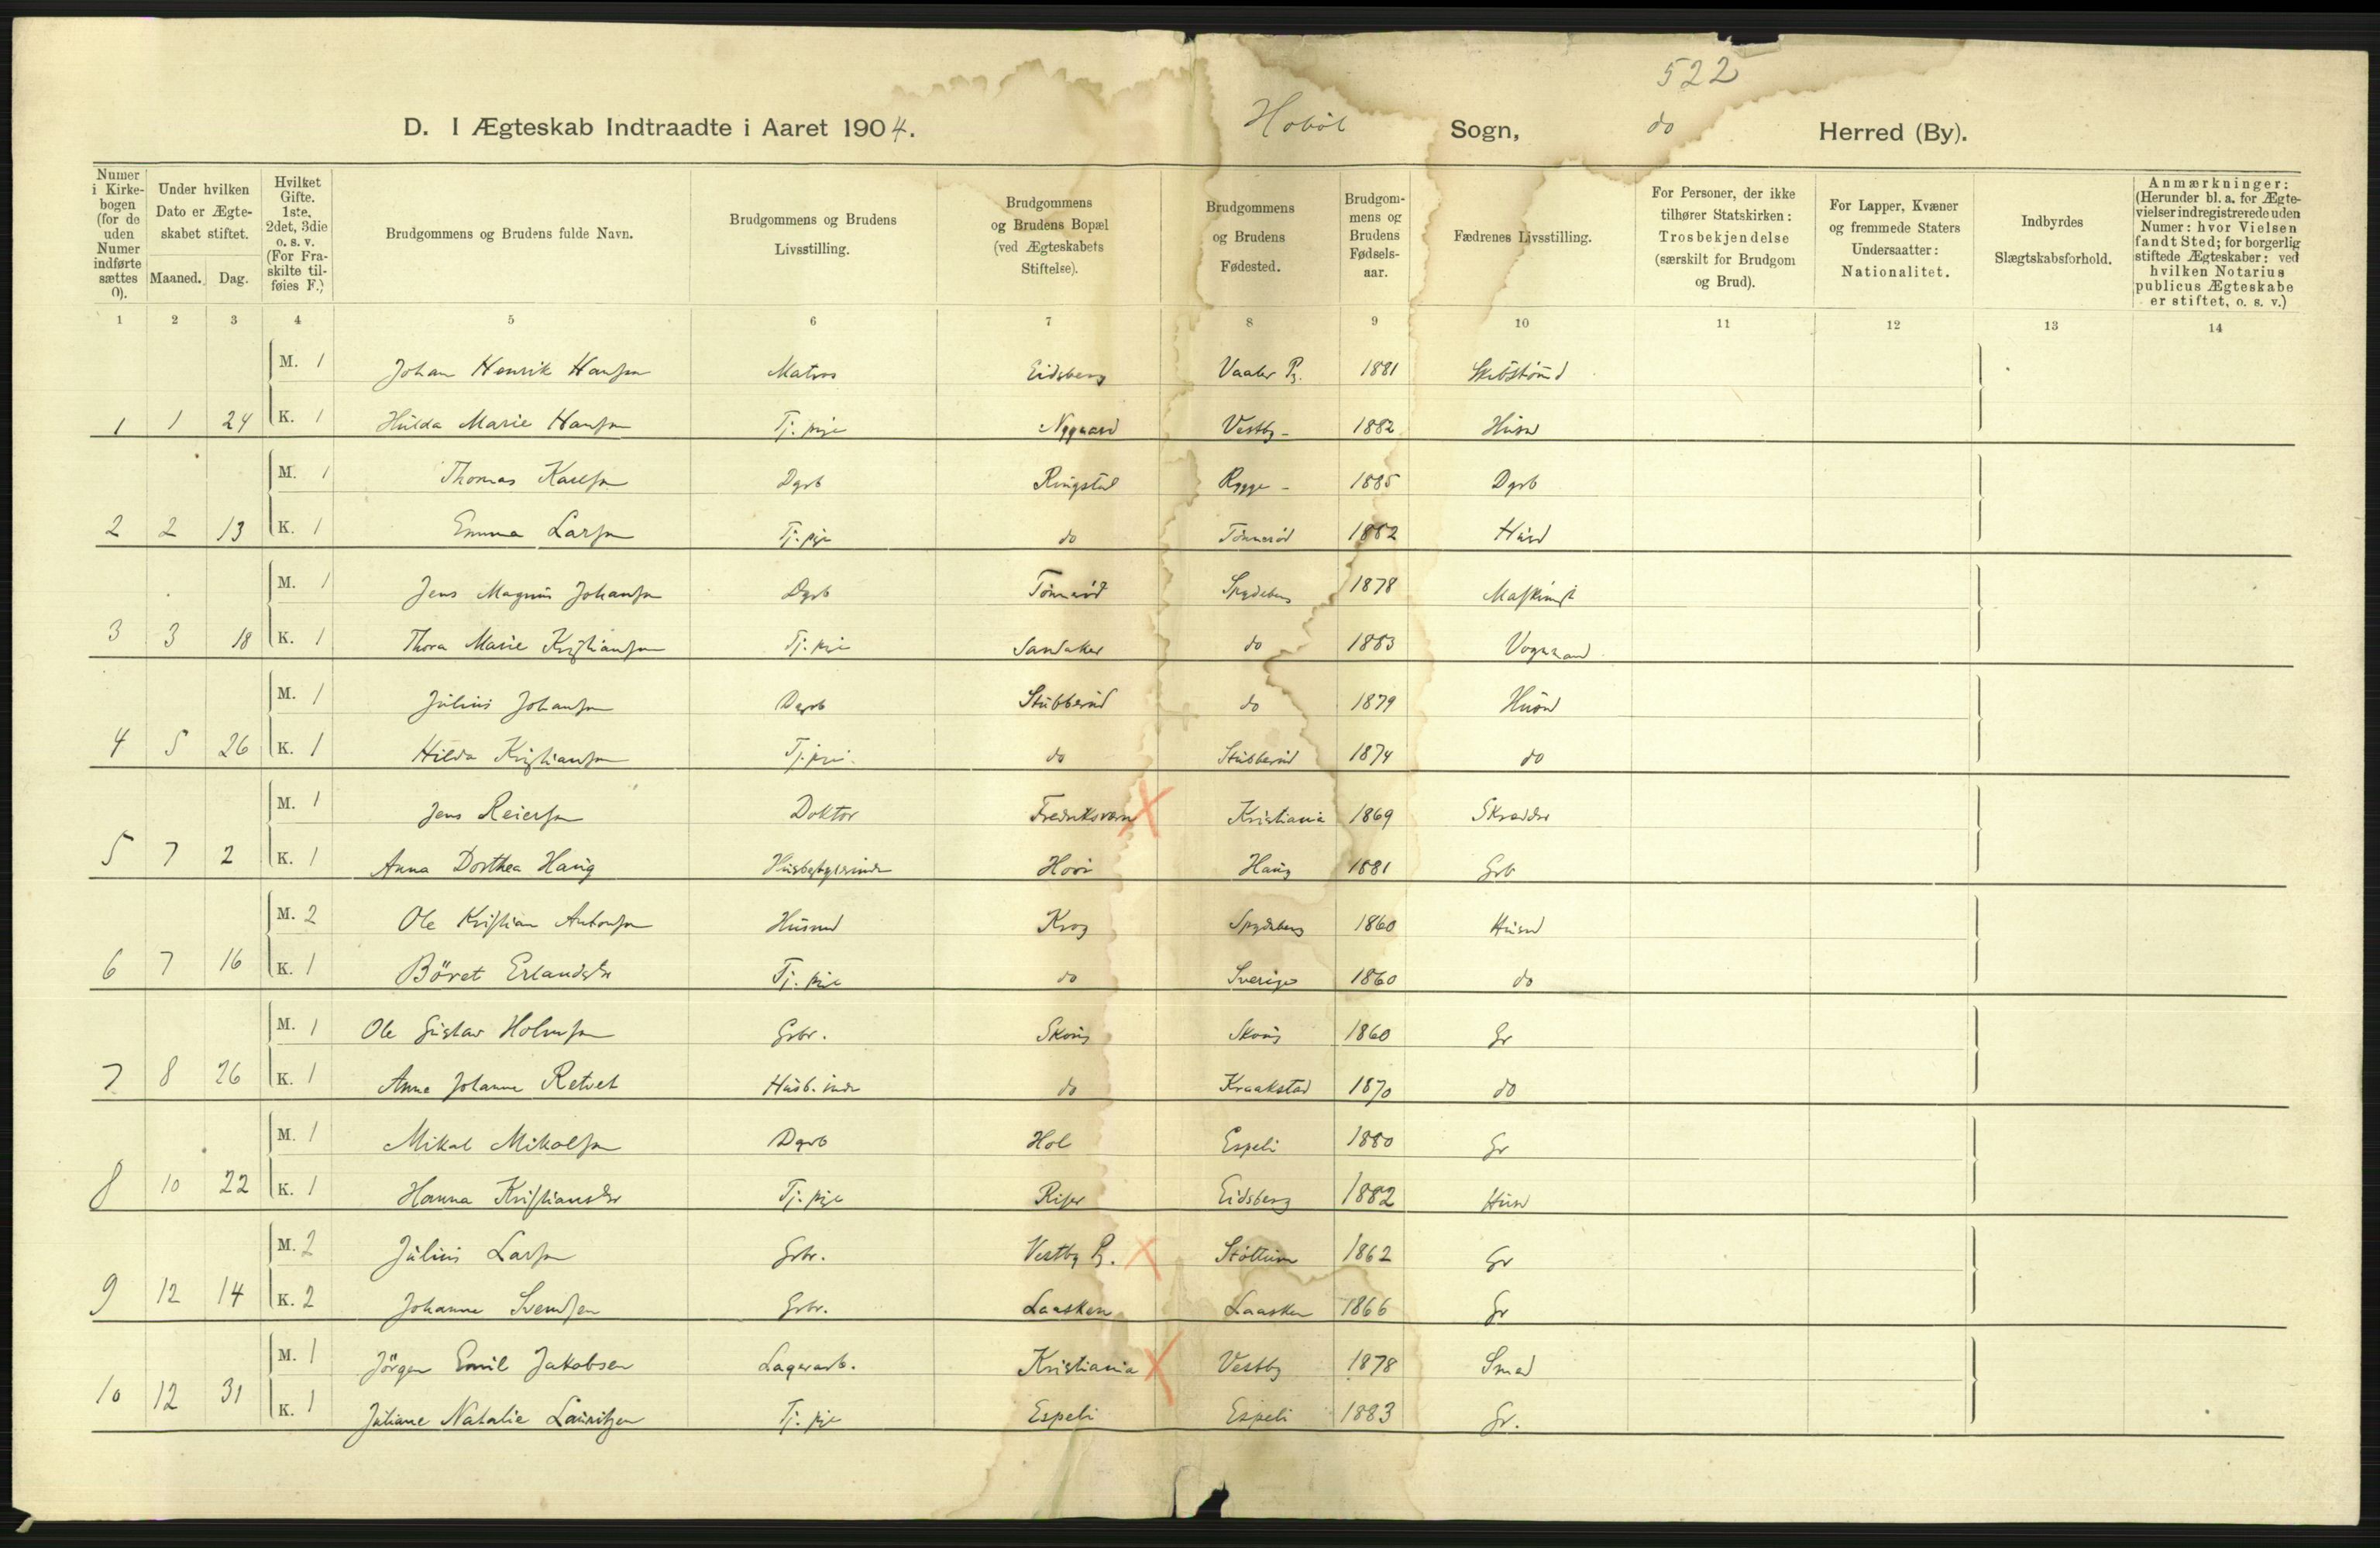 522
D. I Ægteskab Indtraadte i Aaret 1904. Hobøl Sogn, do Herred (By).
Numer i Kirkebogen (for de uden Numer indførte sættes 0).
Under hvilken Dato er Ægteskabet stiftet.
Maaned. Dag.
Hvilket Gifte. 1ste, 2det, 3die o. s. v. (For Fraskilte tilføies F.)
Brudgommens og Brudens fulde Navn.
Brudgommens og Brudens Livsstilling.
Brudgommens og Brudens Bopæl (ved Ægteskabets Stiftelse).
Brudgommens og Brudens Fødested.
Brudgommens og Brudens Fødselsaar.
Fædrenes Livsstilling.
For Personer, der ikke tilhører Statskirken: Trosbekjendelse (særskilt for Brudgom og Brud).
For Lapper, Kvæner og fremmede Staters Undersaatter: Nationalitet.
Indbyrdes Slægtskabsforhold.
Anmærkninger: (Herunder bl. a. for Ægtevielser indregistrerede uden Numer: hvor Vielsen fandt Sted; for borgerlig stiftede Ægteskaber: ved hvilken Notarius publicus Ægteskabe er stiftet, o. s. v.)
1 2 3 4 5 6 7 8 9 10 11 12 13 14
M. 1 Johan Henrik Hansen Matros Eidsberg Vaaler Pg. 1881
1 1 24 K. 1 Hulda Marie Hansen Tj. pige Nygaard Vestby - 1882 Husm
M. 1 Thomas Karlsen Dgrb Ringstad Rygge - 1885 Dgrb
2 2 13 K. 1 Emma Larsen Tj. pige do Tomerød 1882 Husm
M. 1 Jens Magnus Johansen Dgrb Tomerød Spydeberg 1878 Maskinist
3 3 18 K. 1 Thora Marie Kristiansen Tj. pige Sandaker do 1883 Vognmand
M. 1 Julius Johansen Dgrb Stubberud do 1879 Husm
4 5 26 K. 1 Hilda Kristiansen Tj. pige do Stubberud 1874 do
M. 1 Jens Reiersen Doktor Fredriksværn Kristiania 1869 Skrædder
5 7 2 K. 1 Anna Dorthea Haug Husbestyrerinde Haug 1881 Grb
M. 2 Ole Kristian Antonsen Husmd Krog Spydeberg 1860 Husm
6 7 16 K. 1 Böret Erlandsdr Tj. pige do Sverige 1860 do
M. 1 Ole Gustav Holmsen Grbr. Skoug Skoug 1860 Gr
7 8 26 K. 1 Anne Johanne Retvet Husb. inde do Kraakstad 1870 do
M. 1 Mikal Mikalsen Dgrb Hol Espeli 1880 Gr
8 10 22 K. 1 Hanna Kristiansdr Tj. pige Riser Eidsberg 1882 Husm
M. 2 Julius Larsen Grbr. Vestby Pg. Støttum 1862 Gr
9 12 14 K. 2 Johanne Svendsen Grbr. Laasken Laasken 1866 Gr
M. 1 Jörgen Emil Jakobsen Lagerarb. Kristiania Vestby 1878 Smed
10 12 31 K. 1 Juliane Natalie Lauritzen Tj. pige Espeli Espeli 1883 Gr.